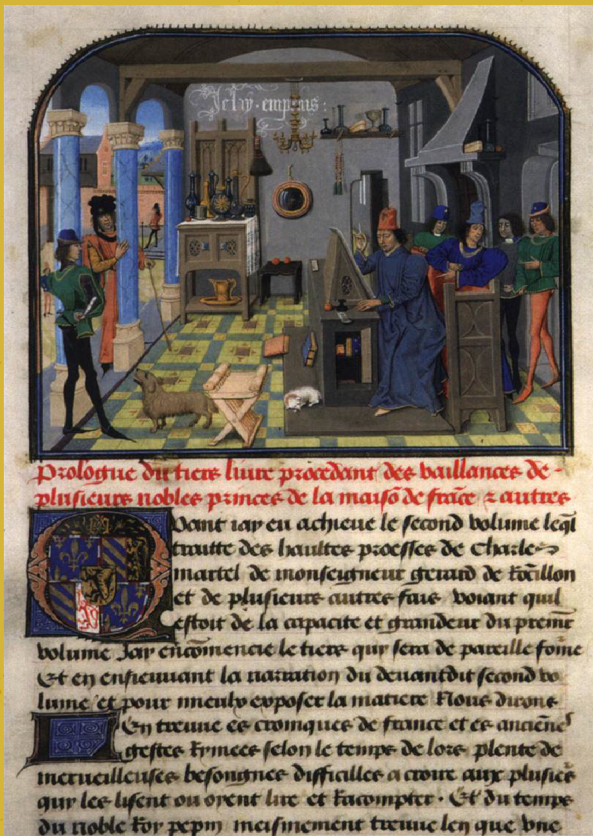 Je lay empens :
Prologue du tiers livre procedant des vaillances de
plusieurs nobles princes de la maisō de frāce & autres
Quant iay eu achieve le second volume leql
traitte des haultes proesses de Charles
martel de monseigneur gerard de Roussillon
et de plusieurs autres fais voiant quil
estoit de la capacite et grandeur du premier
volume Jay encōmencie le tiers qui sera de pareille forme
Et en ensieuvant la narration du devantdit second vo
lume et pour mieulx exposer la matiere Nous dirons
En treuve es croniques de france et es anciēnes
gestes Rymees selon le temps de lors plente de
merveilleuses besongnes difficilles a croire aux plusieurs
qui les lisent ou oyent lire et Racompter . Et du temps
du noble Roy pepin meismement treuve len que une